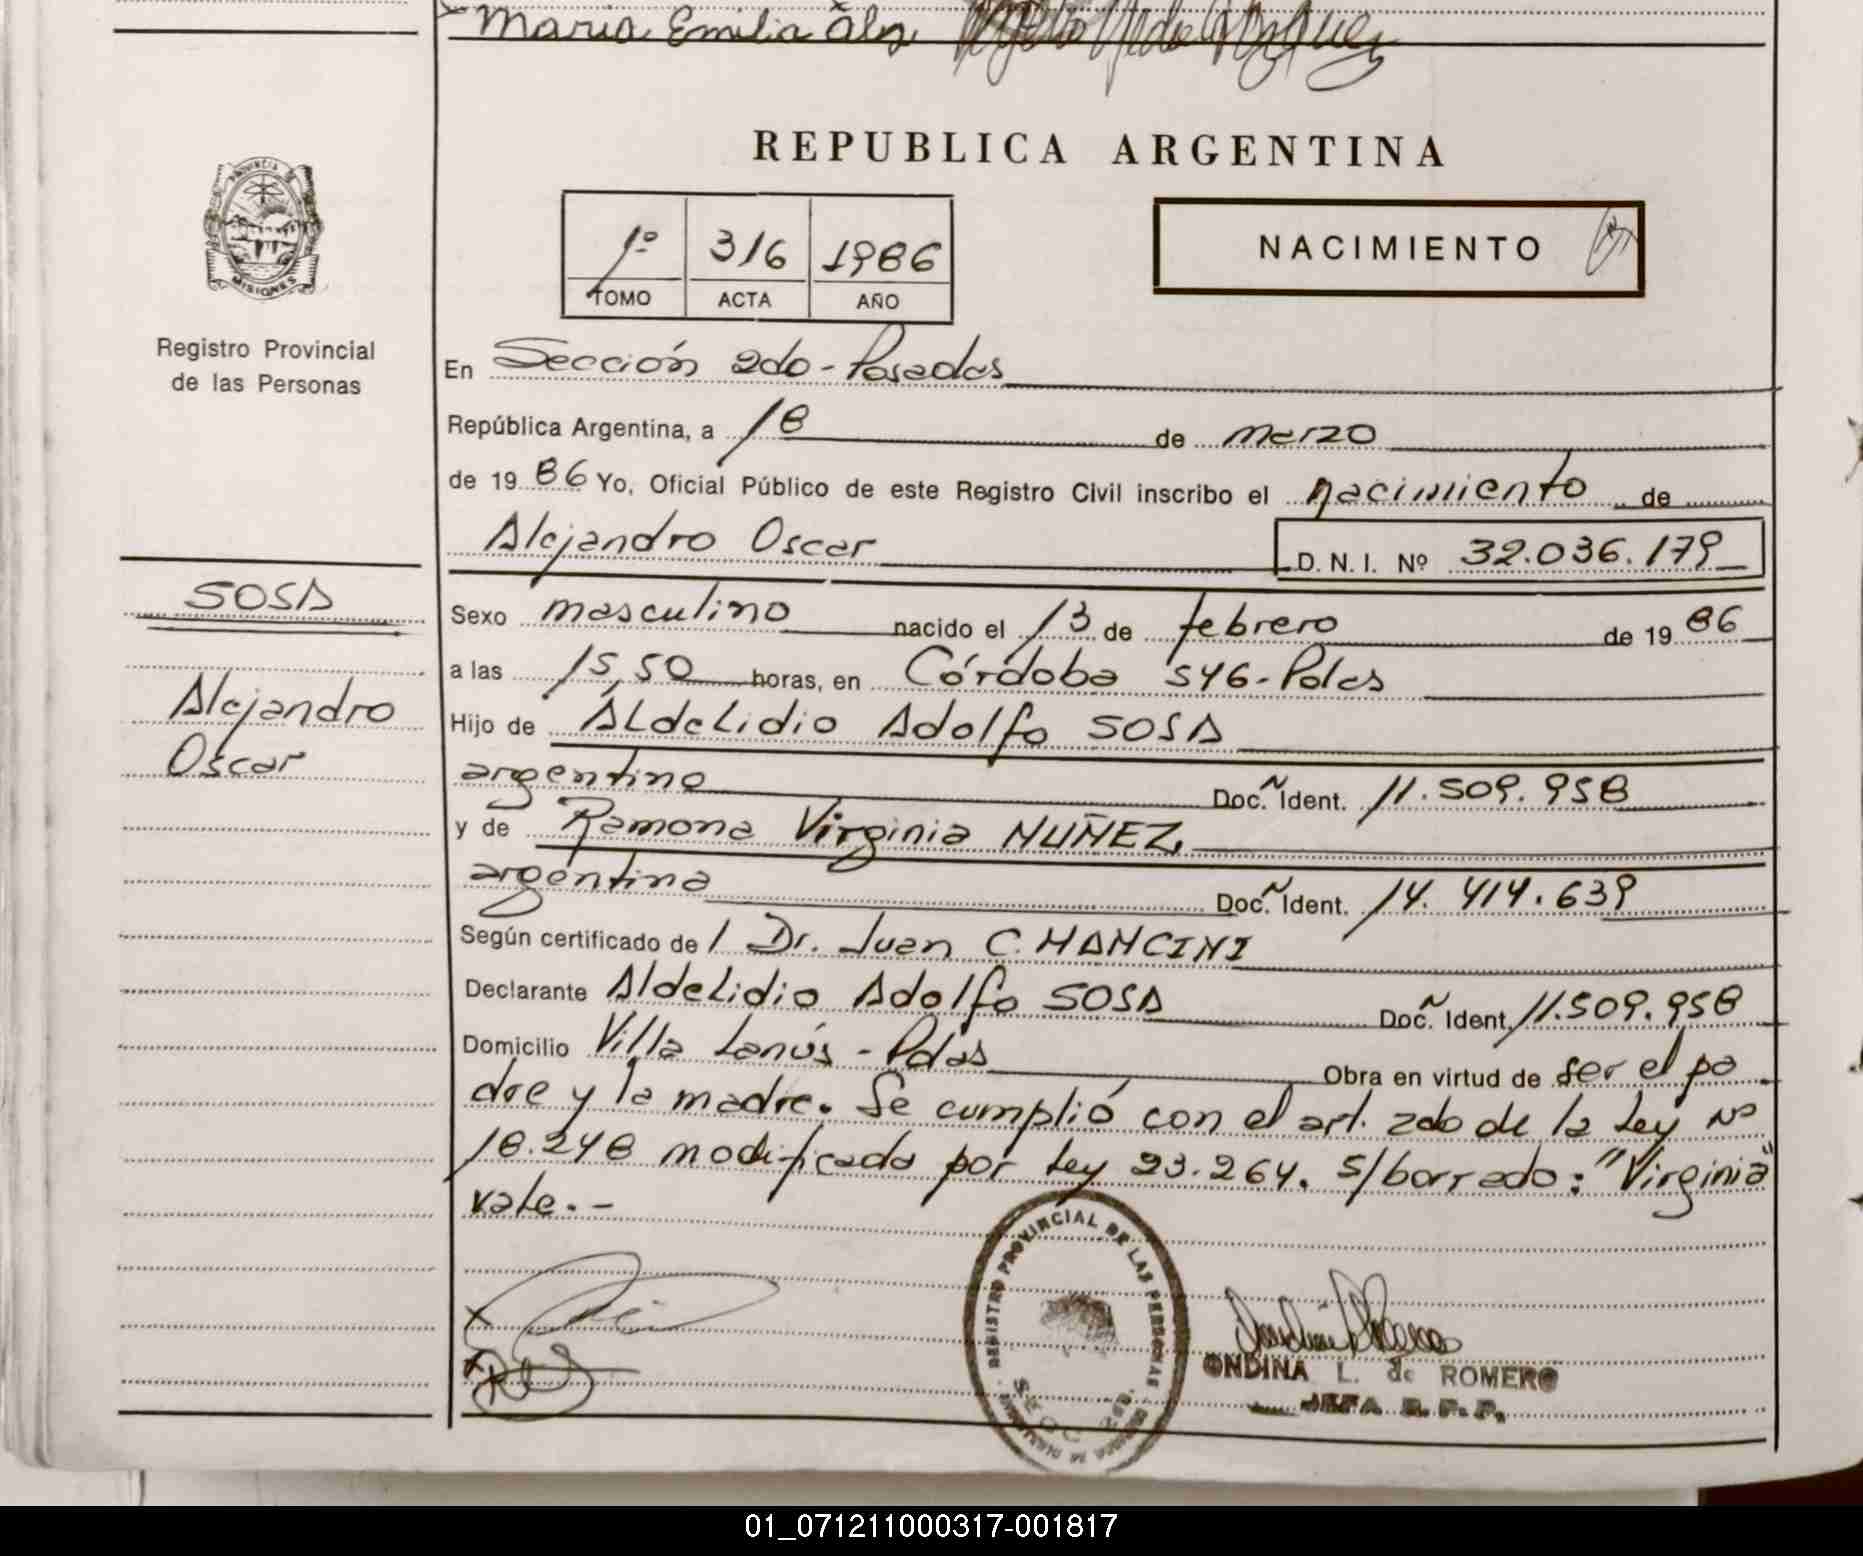 Maria Emilia
REPUBLICA ARGENTINA
PROVINCIA DE
MISIONES
Registro Provincial
de las Personas
1º 316 1986
TOMO ACTA AÑO
NACIMIENTO
En Sección 2do - Posadas
República Argentina, a 18 de marzo
de 1986 Yo, Oficial Público de este Registro Civil inscribo el nacimiento de
Alejandro Oscar D. N. I. Nº 32.036.179
SOSA
Alejandro
Oscar
Sexo masculino nacido el 13 de febrero de 1986
a las 15,50 horas, en Córdoba 546-Pdas
Hijo de Aldelidio Adolfo SOSA
argentino Doc. Ident. 11.509.958
y de Ramona Virginia NUÑEZ
argentina Doc. Ident. 14.414.639
Según certificado de / Dr. Juan C. MANCINI
Declarante Aldelidio Adolfo SOSA Doc. Ident. 11.509.958
Domicilio Villa Lanús - Pdas Obra en virtud de ser el pa
dre y la madre. Se cumplió con el art. 2do de la Ley Nº
18.248 modificada por Ley 23.264. S/borrado: "Virginia"
vale.-
REGISTRO PROVINCIAL DE LAS PERSONAS
ONDINA L. de ROMERO
JEFA R. P. P.
01_071211000317-001817